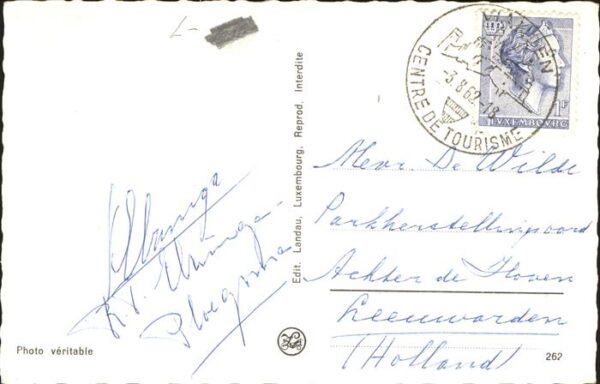 VIANDEN
-3.8.62-18
CENTRE DE TOURISME
LUXEMBOURG
1F
Edit. Landau, Luxembourg. Reprod. Interdite
Mevr. De Wilde
Parkherstellingsoord
Achter de Hoven
Leeuwarden
(Holland)
Photo véritable
262